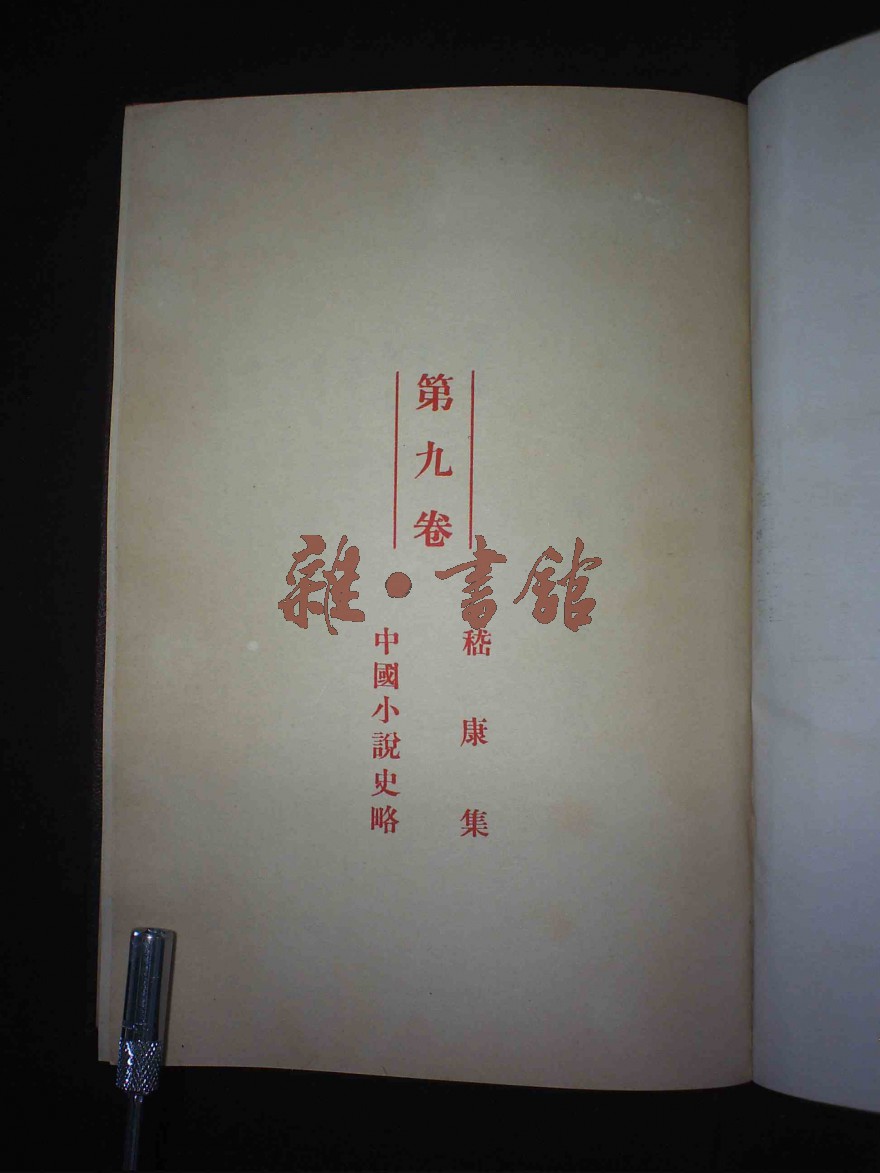 第九卷
嵇康集
中國小說史略
雜·書館